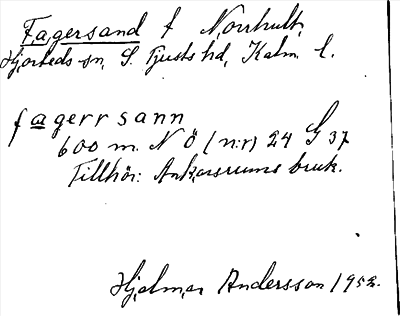 Fagersand t Norrhult,
Hjorteds sn, S. Tjusts hd, Kalm. l.
fagerrsann
600 m. N Ö (n:r) 24 G 37
Tillhör: Ankarsrums bruk.
Hjalmar Andersson 1952.